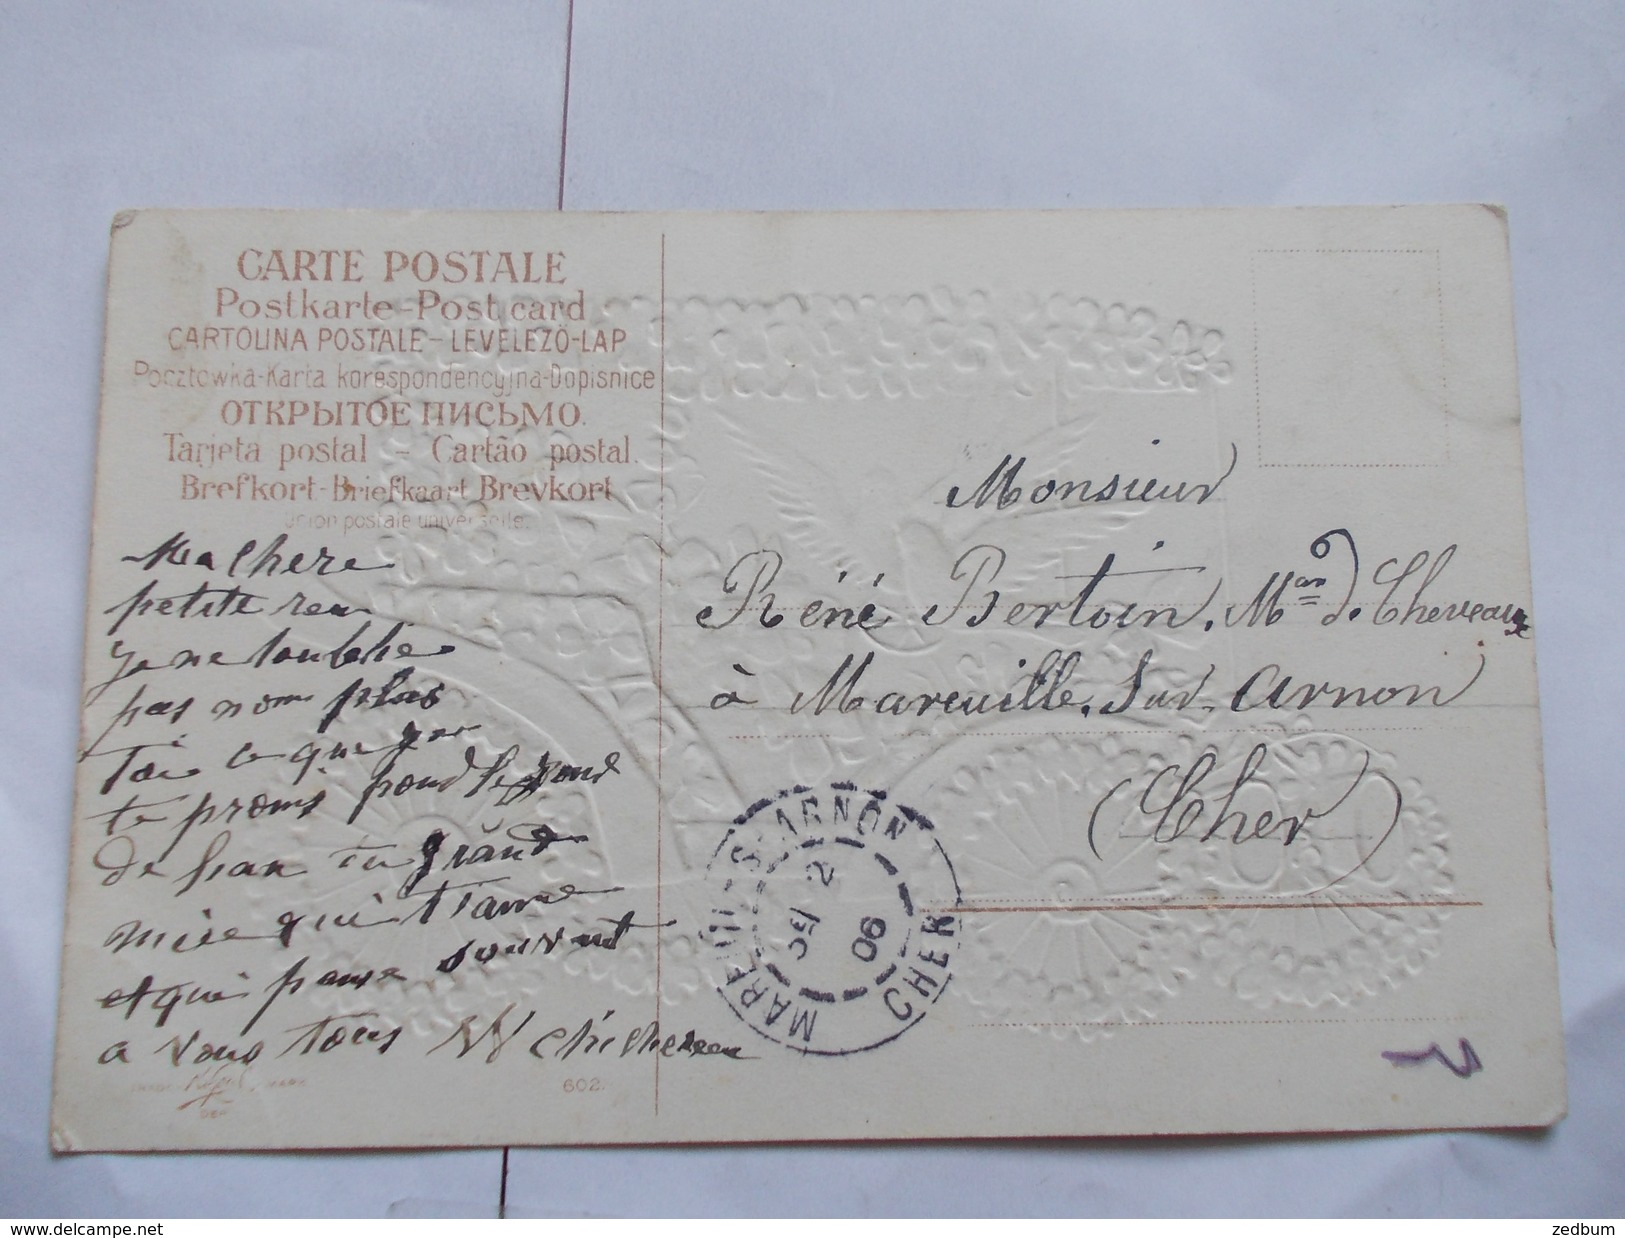 CARTE POSTALE
Postkarte-Post card
CARTOLINA POSTALE-LEVELEZÖ-LAP
Pocztowka-Karta korespondencyjna-Dopisnice
ОТКРЫТОЕ ПИСЬМО.
Tarjeta postal - Cartão postal.
Brefkort-Briefkaart Brevkort
Union postale universelle.
Ma chere
petite
je ne t'oublie
pas non plus
toi ce que
te promi pour le
de par ta grand
mère qui t'aime
et qui panse souvent
a vous tous
602
Monsieur
Réné Bertoin, Man d. Cheveaux
à Mareuille. Sur Arnon
(Cher)
MAREUIL-S-ARNON
2
06
CHER
delcampe.net
zedbum